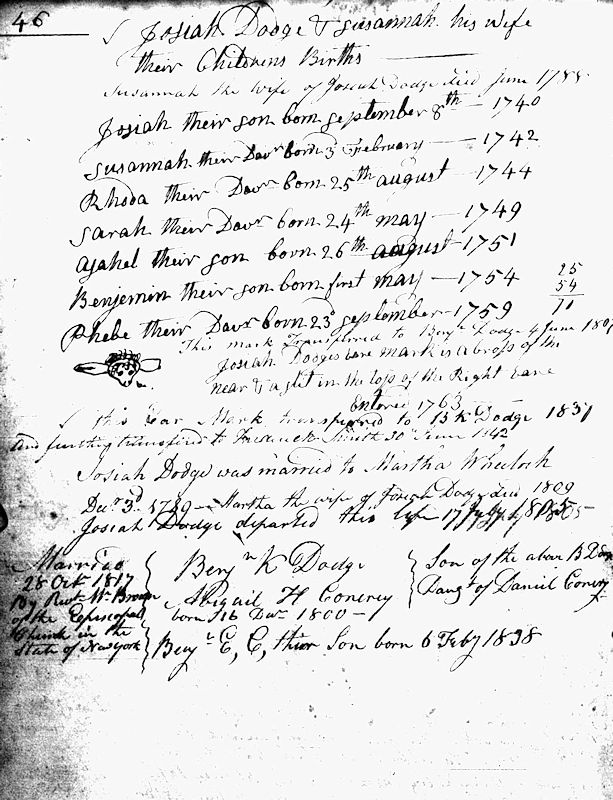 46
Josiah Dodge & Susannah his Wife
their Childrens Births
Susannah the Wife of Josiah Dodge died June 1788
Josiah their son born september 8th — 1740
Susannah their Daur born 3 February — 1742
Rhoda their Daur born 25th august — 1744
Sarah their Daur born 24th may — 1749
asahel their son born 26th august — 1751
Benjemin their son born first may — 1754
25
54
71
Phebe their Daur born 23d september — 1759
This mark Transferred to Benjn Dodge 4 June 1807
Josiah Dodges eare mark is a crop of the
near & a slit in the top of the Right Eare
Entered 1763
this Ear Mark transferred to B K Dodge 1837
And further transferred to Frederick Smith 30 June 1842
Josiah Dodge was married to Martha Wheelock
Decr 3d 1789 — Martha the wife of Josiah Dodge died 1809
Josiah Dodge departed this life 17 July 1805
Married
28 Oct 1817
By Revt Mr Brown
of the Episcopal
Church in the
State of New York
Benjn K Dodge
Son of the above B Dodge
Abigail H Conerey
Daugt of Daniel Conery
born 16 Decr 1800
Benjn E, C, their Son born 6 Feby 1838